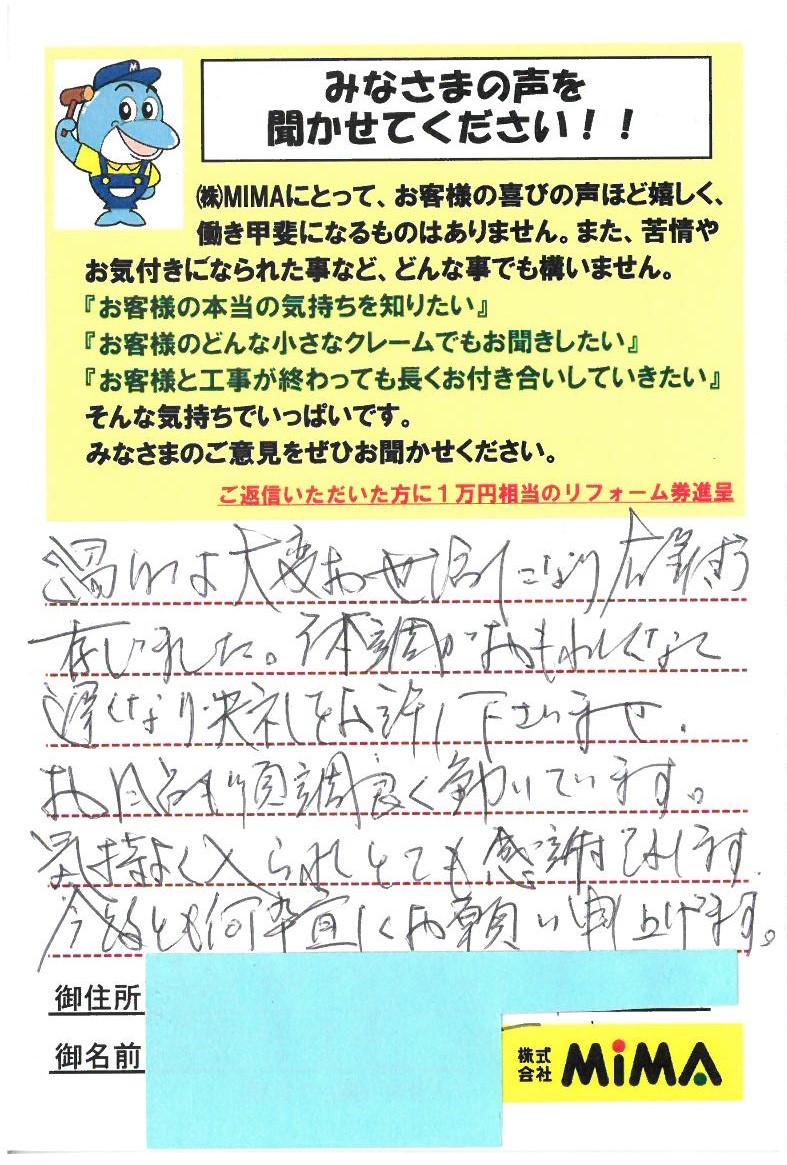 みなさまの声を
聞かせてください！！
㈱MIMAにとって、お客様の喜びの声ほど嬉しく、
働き甲斐になるものはありません。また、苦情や
お気付きになられた事など、どんな事でも構いません。
『お客様の本当の気持ちを知りたい』
『お客様のどんな小さなクレームでもお聞きしたい』
『お客様と工事が終わっても長くお付き合いしていきたい』
そんな気持ちでいっぱいです。
みなさまのご意見をぜひお聞かせください。
ご返信いただいた方に１万円相当のリフォーム券進呈
大変お世話になり
存じました。体調がおもわしくなく
遅くなり失礼をお許し下さいませ。
順調良く動いています。
気持よく入られとても感謝
今後とも何卒宜しくお願い申し上げます。
御住所
御名前
株式会社 MiMA